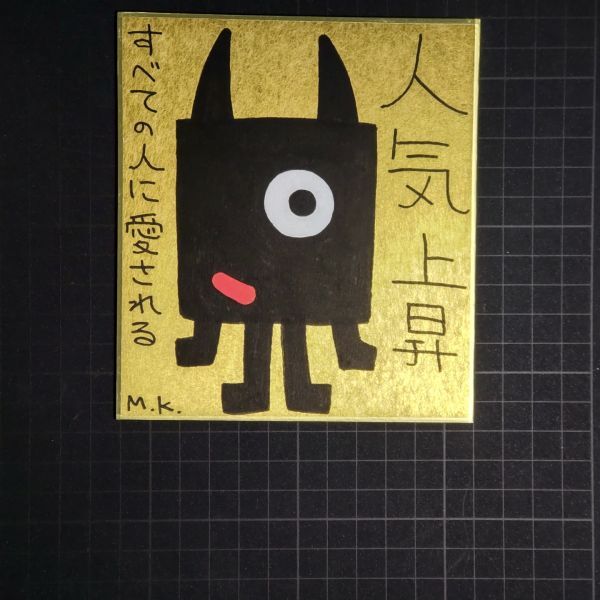 人気上昇
すべての人に愛される
M.K.